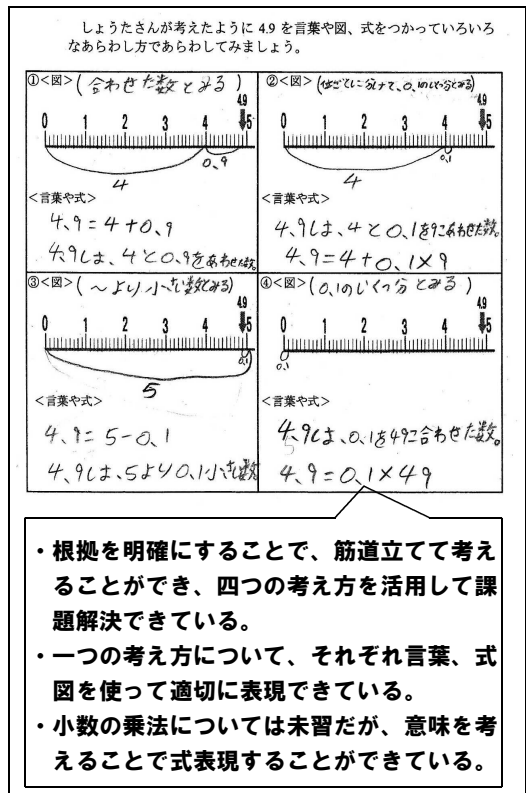 しょうたさんが考えたように 4.9 を言葉や図、式をつかっていろいろ
なあらわし方であらわしてみましょう。
①<図>(合わせた数とみる)
4.9
0 1 2 3 4 5
4 0、9
<言葉や式>
4、9=4+0、9
4、9は、4と0、9をあわせた数。
②<図>(位ごとに分けて、0、1のいくつ分とみる)
4.9
0 1 2 3 4 5
4 0、1
<言葉や式>
4、9は、4と0、1を9こあわせた数。
4、9=4+0、1×9
③<図>(～より小さい数とみる)
4.9
0 1 2 3 4 5
5 0、1
<言葉や式>
4、9=5-0、1
4、9は、5より0、1小さい数
④<図>(0、1のいくつ分とみる)
4.9
0 1 2 3 4 5
0、1
<言葉や式>
4、9は、0、1を49こ合わせた数。
4、9=0、1×49
・根拠を明確にすることで、筋道立てて考え
ることができ、四つの考え方を活用して課
題解決できている。
・一つの考え方について、それぞれ言葉、式
図を使って適切に表現できている。
・小数の乗法については未習だが、意味を考
えることで式表現することができている。